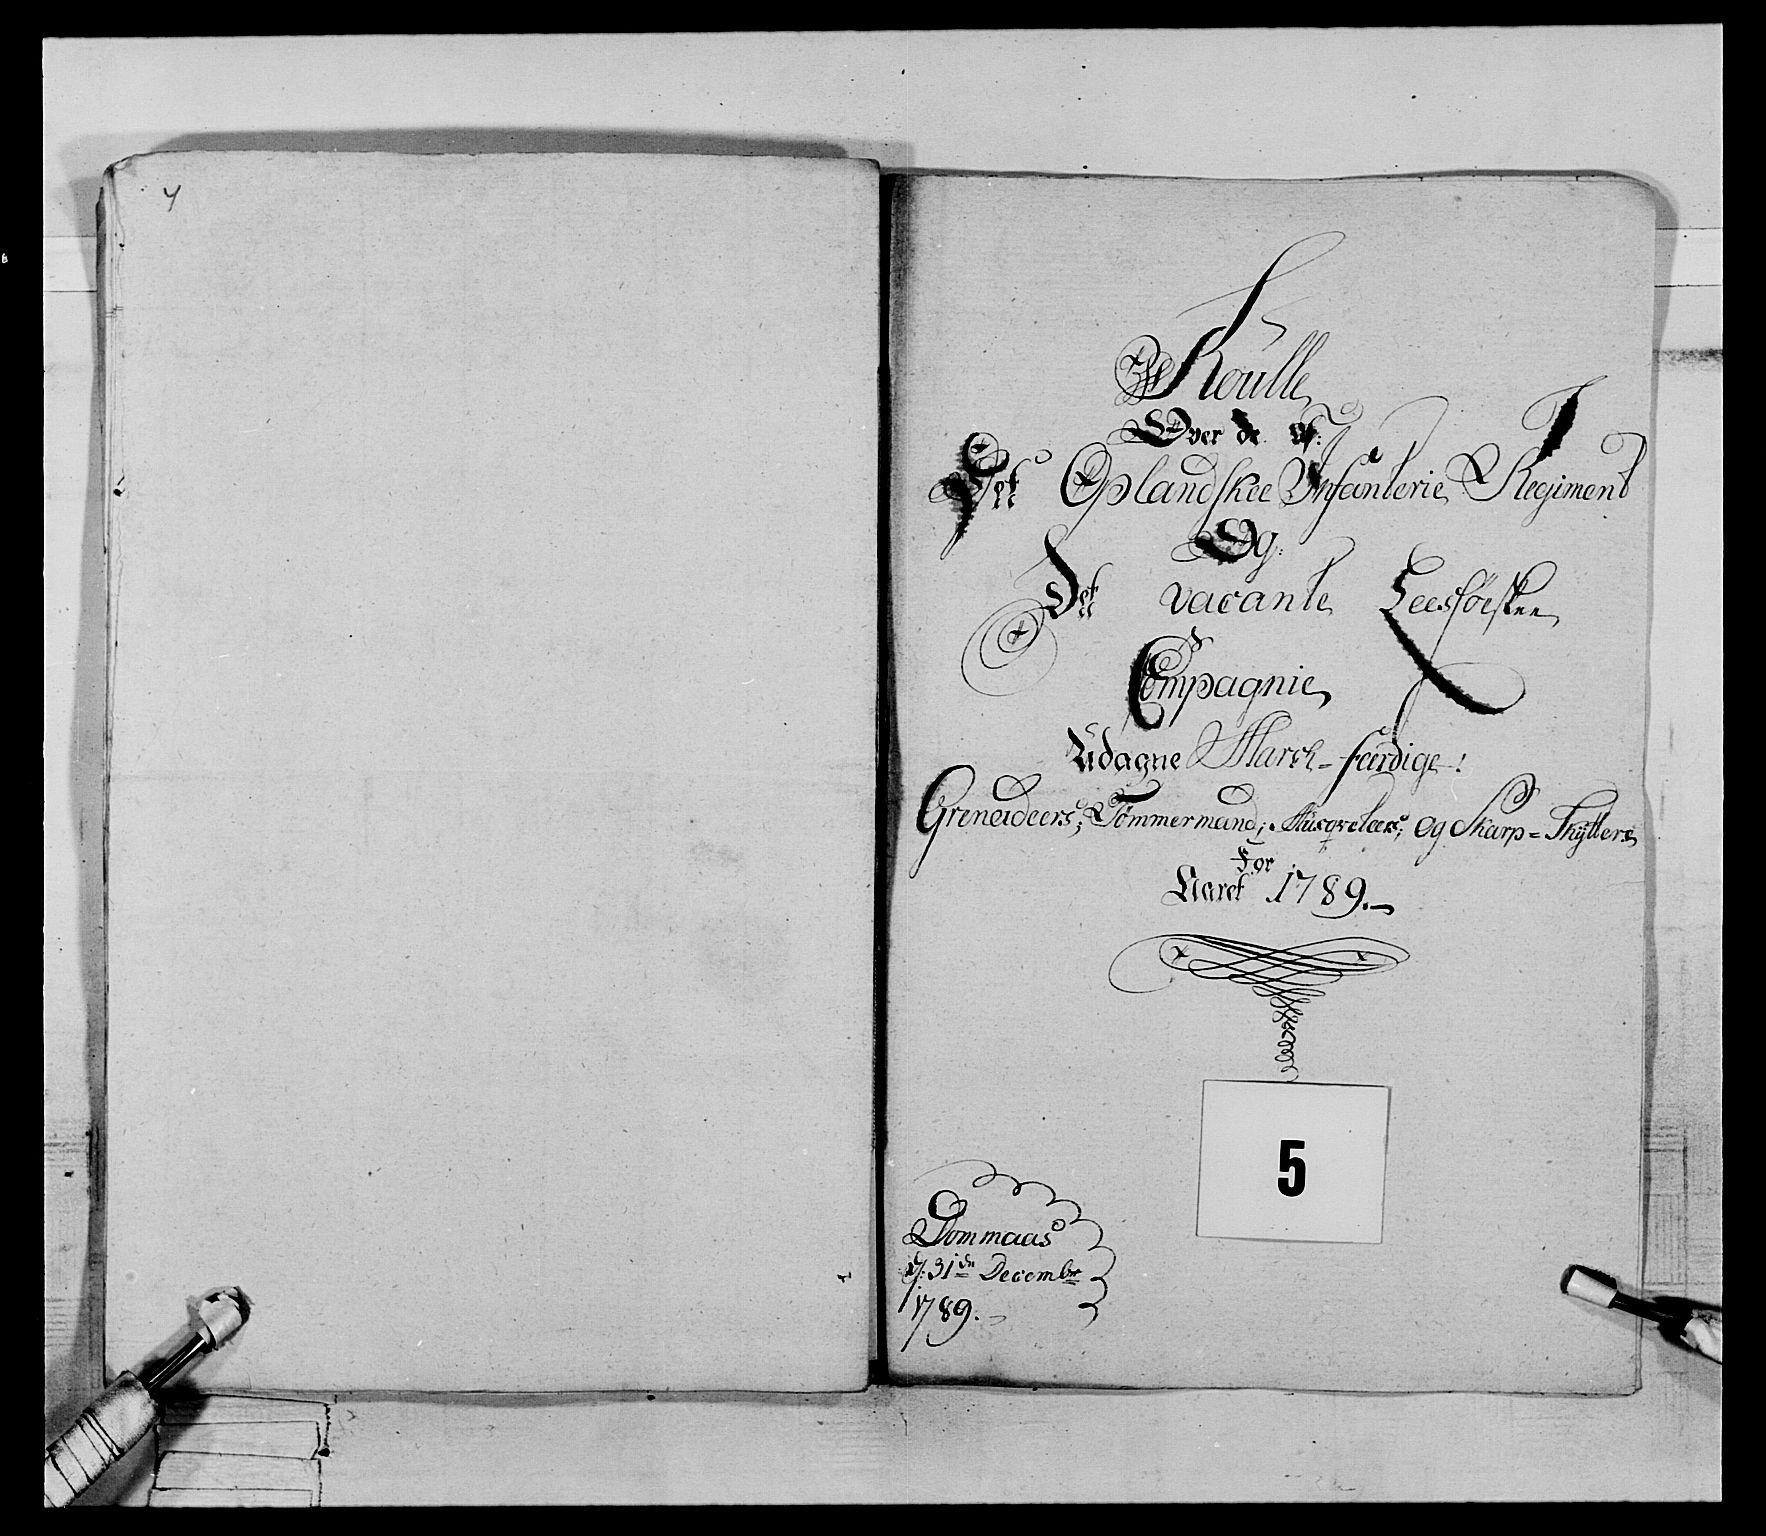 4
Roulle
Over de af
Det Oplandskee Infanterie Regiment
Og
Det vacante Leesføeskee
Compagnie
Udagne March-feerdige
Grenadeers; Tømmermænd; Musqveteers; Og Skarp=Skÿtters
For
Aaret 1789.
5
Dommaas
d: 31de Decembr
1789.